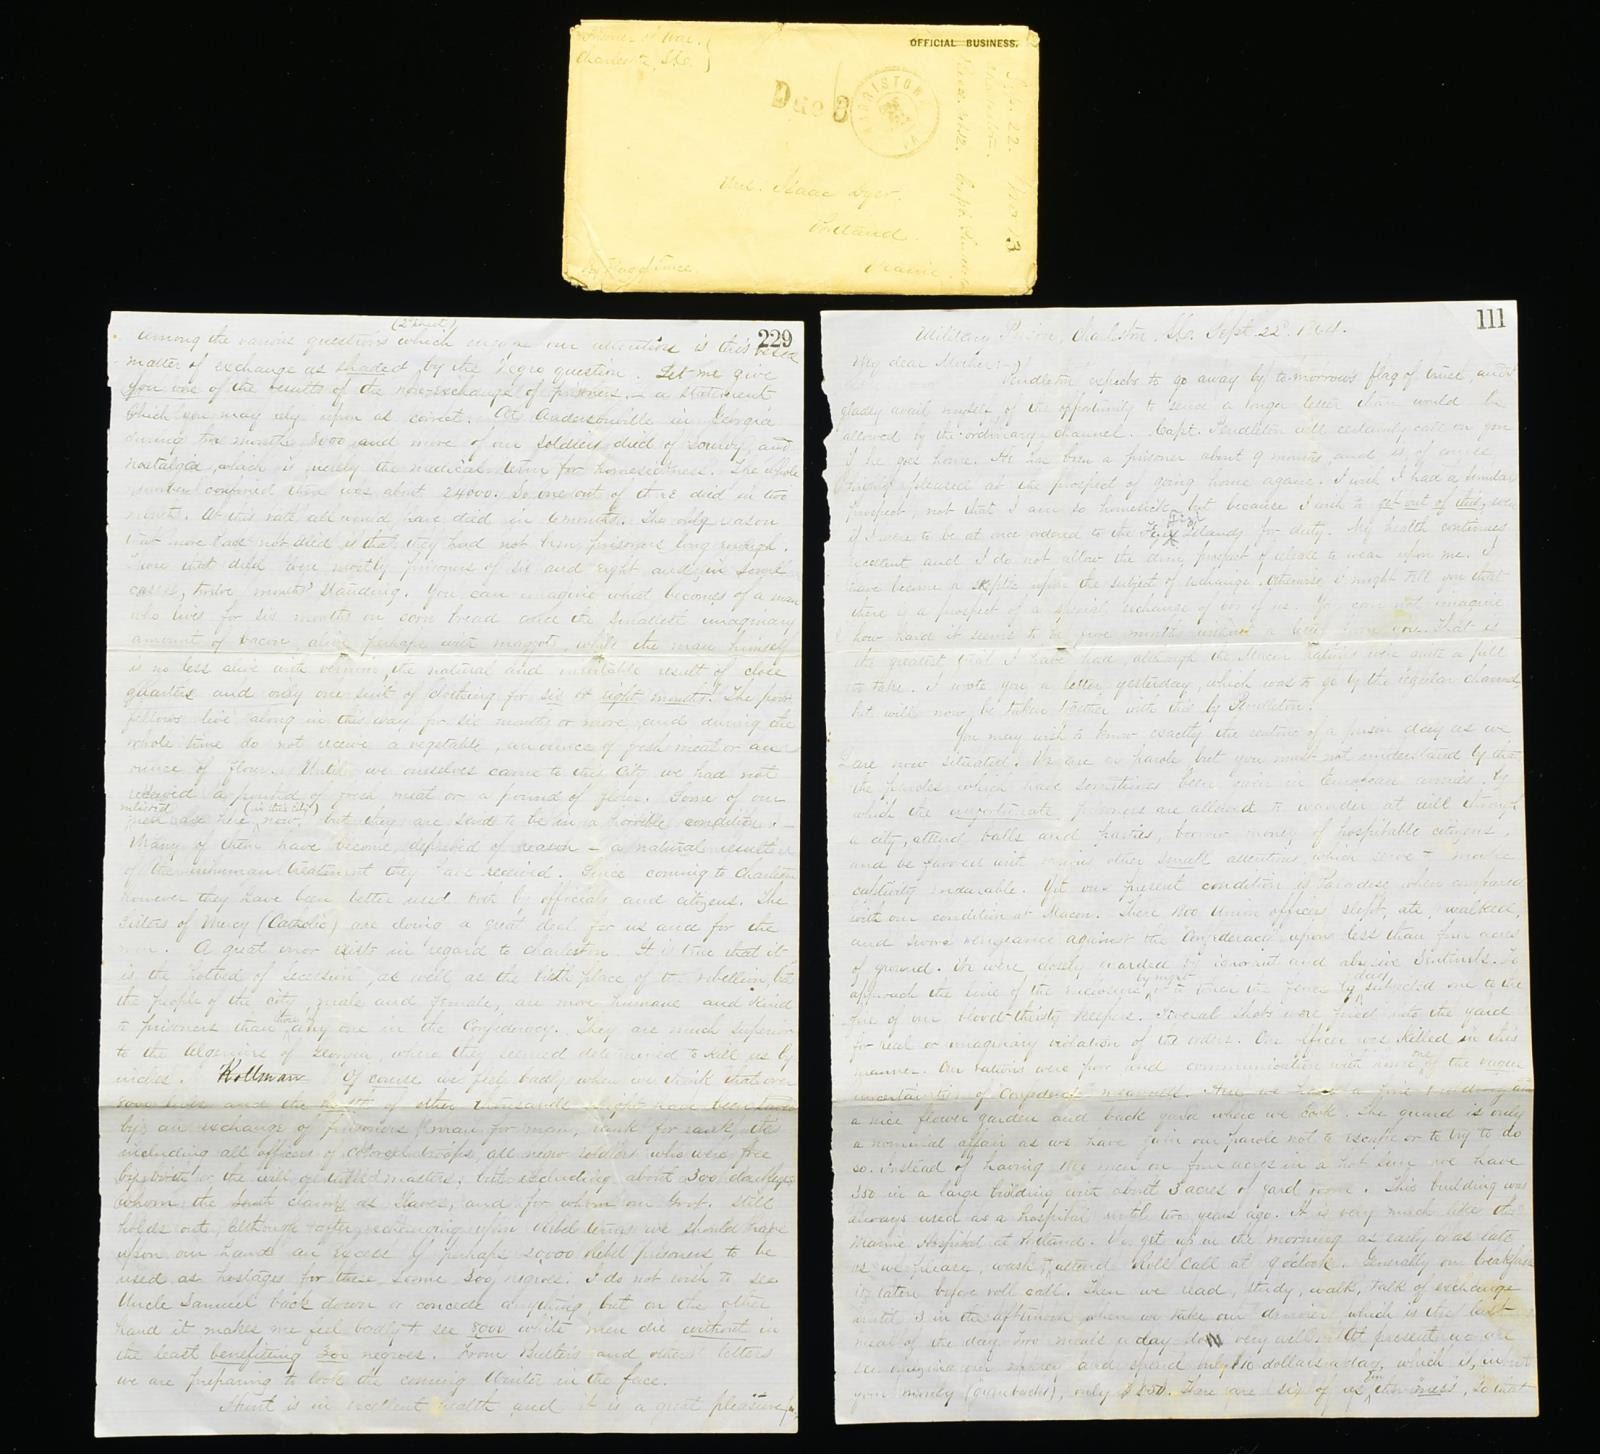 Prisoner of War.
Charleston, S.C.
OFFICIAL BUSINESS.
Due 6
Mrs. Isaac Dyer.
Portland
Maine
By Flag of Truce.
Sept. 22.
Charleston.
229
(2d sheet)
Among the various questions which engage our attention is this
matter of exchange as shaded by the Negro question. Let me give
you one of the results of the non-exchange of prisoners, - a statement
which you may rely upon as correct. At Andersonville in Georgia
during two months 8000 and more of our soldiers died of scurvy, and
nostalgia, which is merely the medical term for homesickness. The whole
number confined there was about 24000. So one out of three died in two
months. At this rate all would have died in 6 months. The only reason
that more had not died is that they had not been prisoners long enough.
Those that died were mostly prisoners of six and eight and, in some
cases, twelve months' standing. You can imagine what becomes of a man
who lives for six months on corn bread and the smallest imaginary
amount of bacon, alive perhaps with maggots, while the man himself
is no less alive with vermin, the natural and inevitable result of close
quarters and only one suit of clothing for six or eight months! The poor
fellows live along in this way for six months or more, and during the
whole time do not receive a vegetable, an ounce of fresh meat or an
ounce of flour. Until we ourselves came to this City we had not
received a pound of fresh meat or a pound of flour. Some of our
enlisted (in this City)
men are here now, but they are said to be in a horrible condition. -
Many of them have become deprived of reason - a natural result
of the inhuman treatment they have received. Since coming to Charleston
however they have been better used both by officials and citizens. The
Sisters of Mercy (Catholic) are doing a great deal for us and for the
men. A great error exists in regard to Charleston. It is true that it
is the hotbed of secession, as well as the birth place of the rebellion, but
the people of the city, male and female, are more humane and kind
to prisoners than those any one in the Confederacy. They are much superior
to the Algerines of Georgia, where they seemed determined to kill us by
inches. Rollman Of course we feel badly when we think that over
8000 lives and the health of other thousands might have been saved
by an exchange of prisoners, man for man, rank for rank, this
including all officers of colored troops, all negro soldiers who were free
by birth or the will of masters; but excluding about 300 darkeys
whom the South claims as slaves, and for whom our Govt. still
holds out, although after exchanging upon Rebel terms we should have
upon our hands an excess of perhaps 20,000 Rebel prisoners to be
used as hostages for these some 300 negroes. I do not wish to see
Uncle Samuel back down or concede anything, but on the other
hand it makes me feel badly to see 8000 white men die without in
the least benefitting 300 negroes. From Butler's and other letters
we are preparing to look the coming Winter in the face.
Hunt is in excellent health and it is a great pleasure
111
Military Prison, Charleston, S.C. Sept. 22d 1864.
My dear Mother:-
Pendleton expects to go away by to-morrow's flag of truce, and I
gladly avail myself of the opportunity to send a longer letter than would be
allowed by the ordinary channel. Capt. Pendleton will certainly call on you
if he goes home. He has been a prisoner about 9 months and is, of course,
pleased at the prospect of going home again. I wish I had a similar
prospect, not that I am so homesick, but because I wish to get out of this, even
if I were to be at once ordered to the Feejee Islands for duty. My health continues
excellent and I do not allow the dim prospect of release to wear upon me. I
have become a skeptic upon the subject of exchange. Otherwise I might tell you that
there is a prospect of a special exchange of of us. You can not imagine
how hard it seems to be five months without a letter from you. That is
the greatest trial I have had, although the Macon rations were quite a pill
to take. I wrote you a letter yesterday, which was to go by the regular channel,
but will now be taken together with this by Pendleton.
You may wish to know exactly the routine of a prison day as we
are now situated. We are on parole but you must not understand by that
the paroles which have sometimes been given in European armies, by
which the unfortunate prisoners are allowed to wander at will through
a city, attend balls and parties, borrow money of hospitable citizens,
and be favored with various other small attentions which serve to make
captivity endurable. Yet our present condition is Paradise when compared
with our condition at Macon. There 1800 Union officers slept, ate, walked,
and swore vengeance against the "Confederacy" upon less than four acres
of ground. We were closely guarded by ignorant and abusive Sentinels. To
approach the line of the enclosure by night or to touch the fence by day subjected one to the
fire of our blood-thirsty keepers. Several shots were fired into the yard
for real or imaginary violation of the orders. One officer was killed in this
manner. Our rations were poor and communication with home one of the vague
uncertainties of Confederate. Here we have a fine building with
a nice flower garden and back yard where we cook. The guard is only
a nominal affair as we have given our parole not to escape or to try to do
so. Instead of having 1800 men on four acres in a hot sun we have
350 in a large building with about 3 acres of yard room. This building was
always used as a hospital until two years ago. It is very much like the
Marine Hospital at Portland. We get up in the morning as early or as late
as we please, wash & attend Roll Call at 9 o'clock. Generally our breakfast
is taken before roll call. Then we read, study, walk, talk of exchange
until 3 in the afternoon when we take our dinner, which is the last
meal of the day. Two meals a day do very well. At present we are
economizing our money and spend only 10 dollars a day, which is, in
your money (greenbacks), only $ .50. There are six of us in the "mess", so that